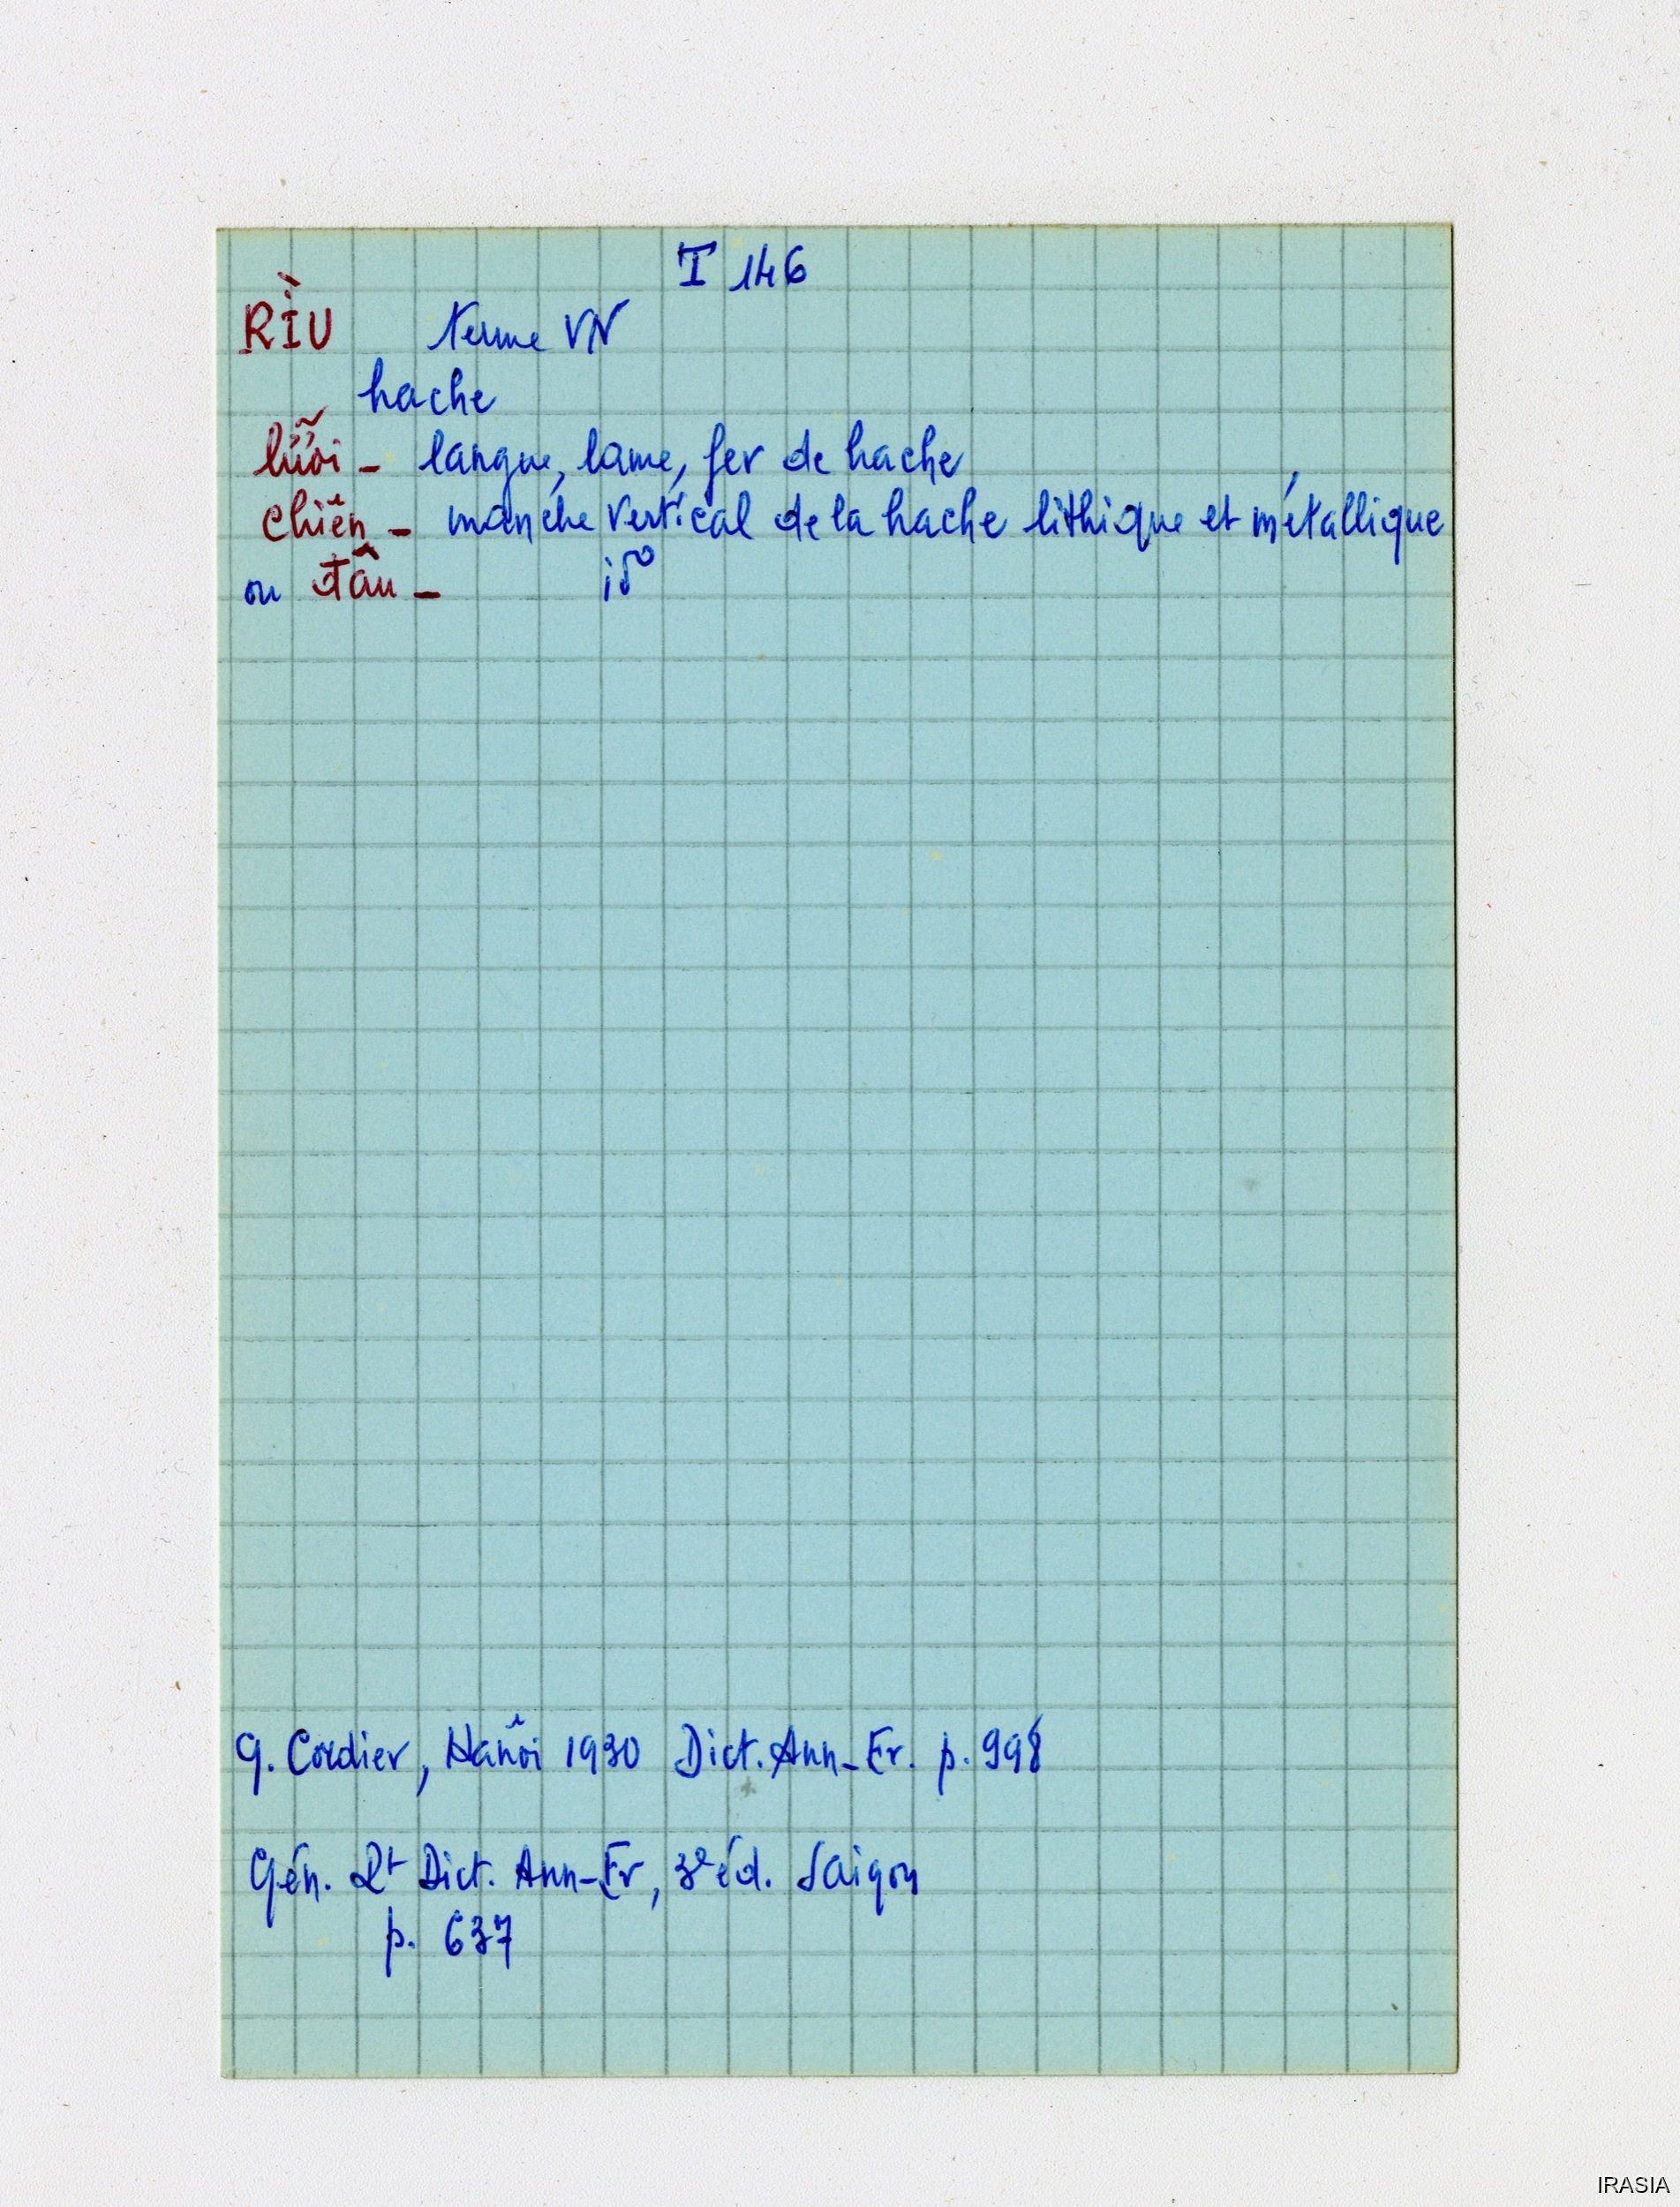 I 146
RÌU terme VN
hache
lưỡi _ langue, lame, fer de hache
chiên _ manche vertical de la hache lithique et métallique
ou tâu _ id°
G. Cordier, Hanôi 1930 Dict. Ann-Fr. p. 998
Gén. Dt Dict. Ann-Fr, 3e éd. Saigon
p. 637
IRASIA